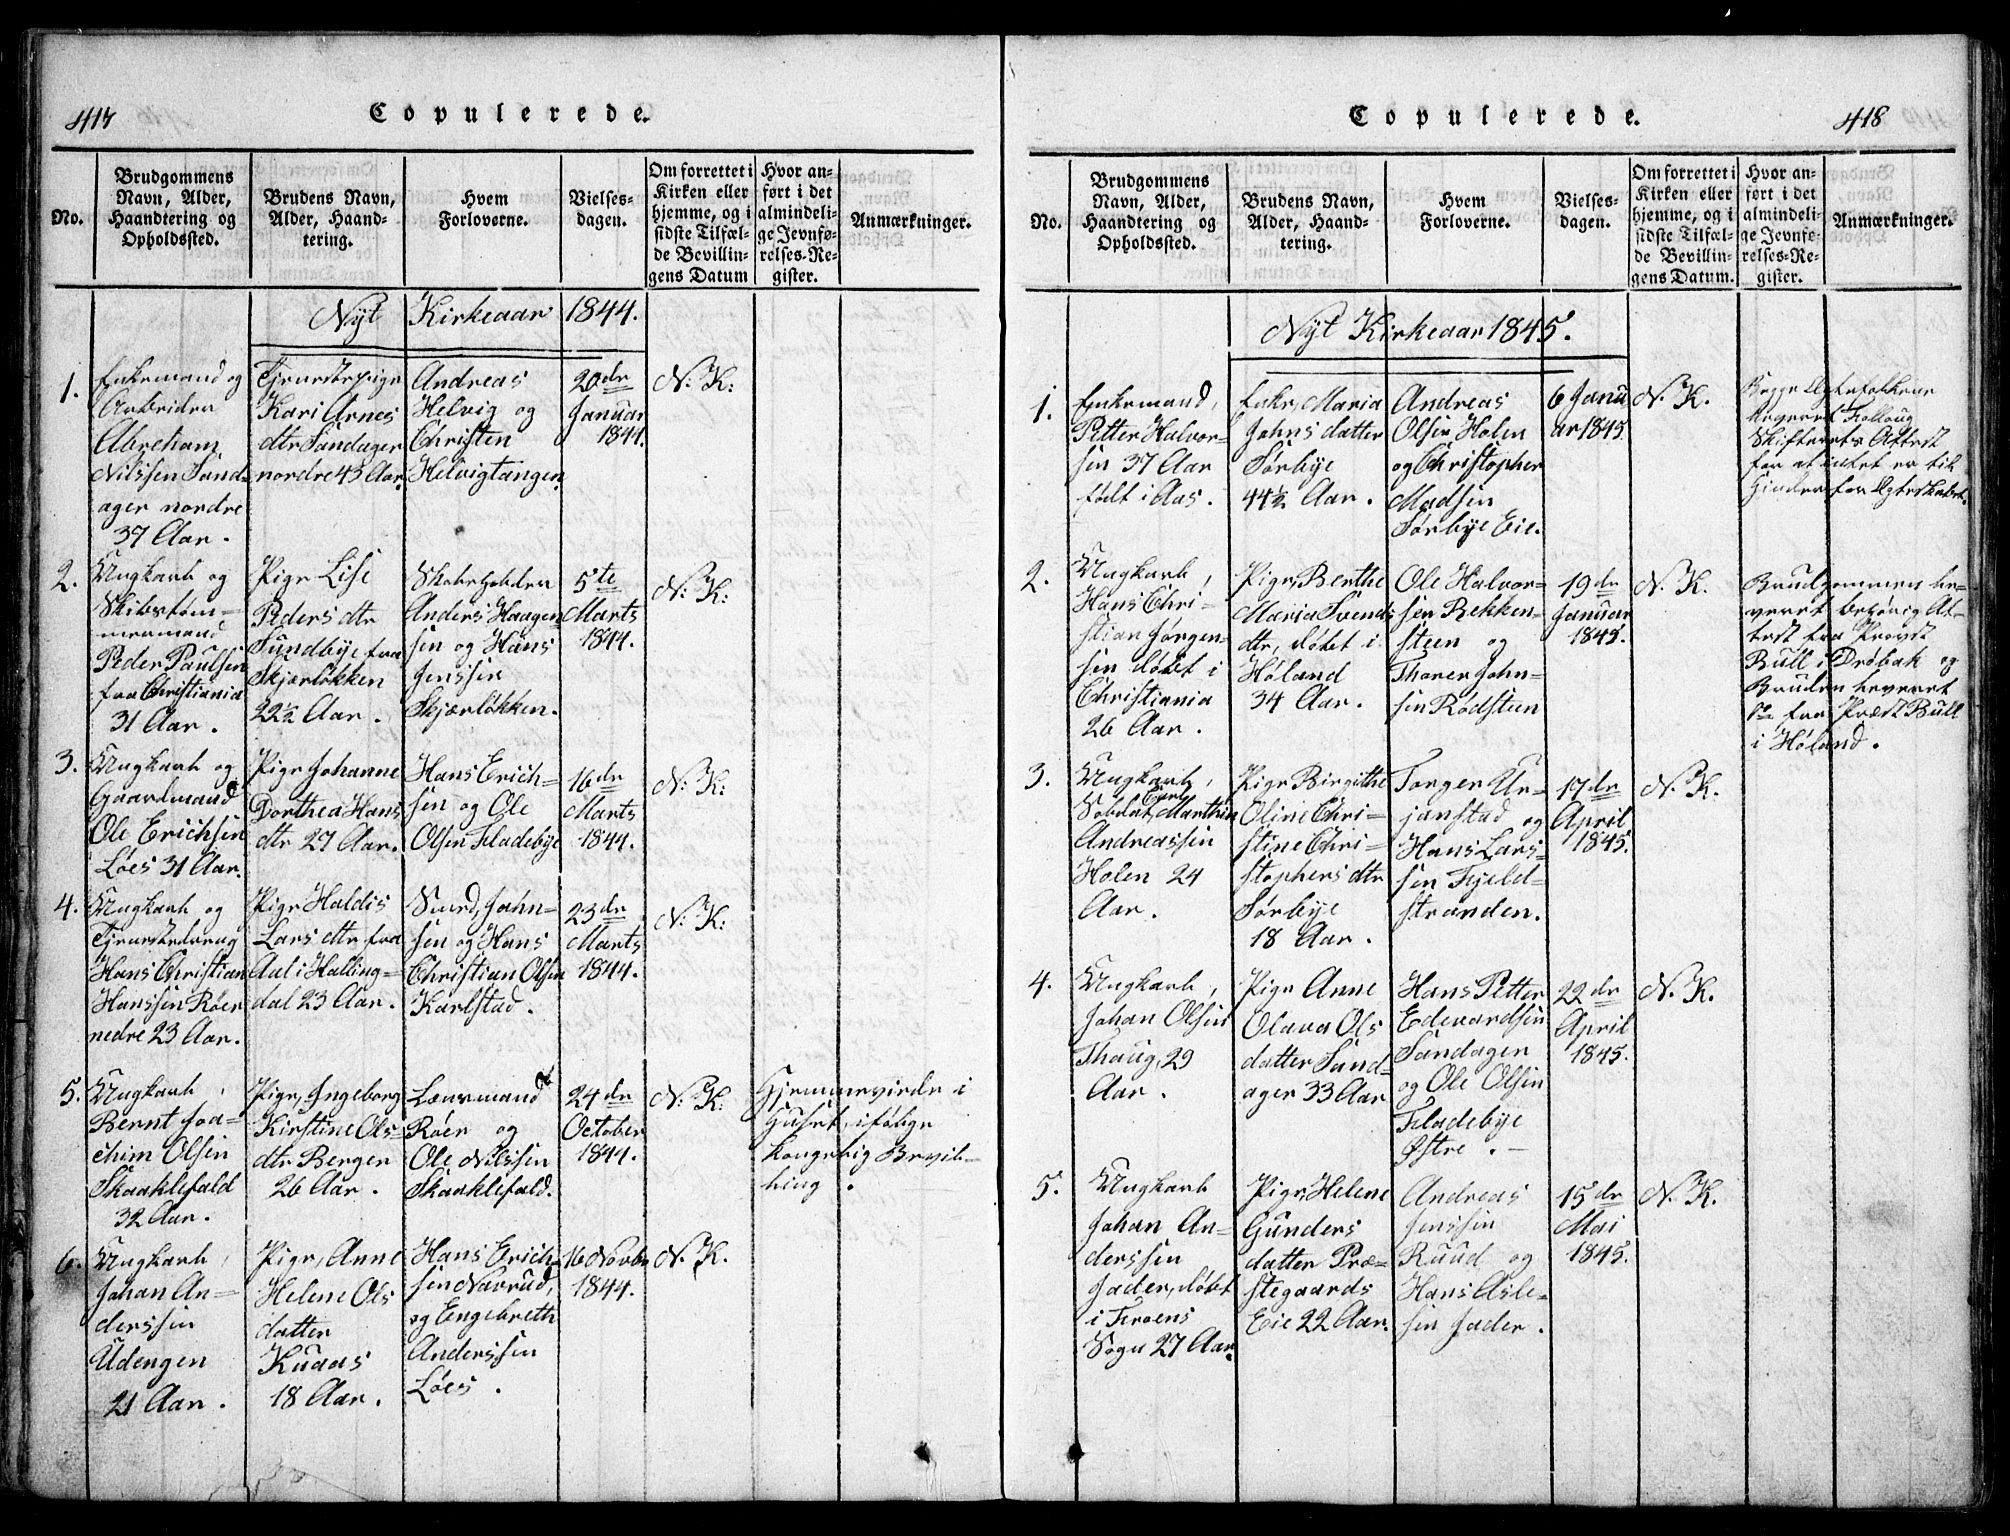 417
Copulerede.
No.
Brudgommens
Navn, Alder,
Haandtering og
Opholdssted.
Brudens Navn,
Alder, Haand-
tering.
Hvem
Forloverne.
Vielses-
dagen.
Om forrettet i
Kirken eller
hjemme, og i
sidste Tilfæl-
de Bevillin-
gens Datum
Hvor an-
ført i det
almindeli-
ge Jevnfø-
relses-Re-
gister.
Anmærkninger.
Nyt Kirkeaar 1844.
1.
Enkemand og
Arbeider
Abreham
Nilssen Sund-
ager nordre
37 Aar.
Tjenestepige
Kari Arnes
dtr Sundager
nordre 43 Aar.
Andreas
Helvig og
Christen
Helvigtangen
20de
Januar
1844.
N: K:
2.
Ungkarl og
Skibstøm-
mermand
Peder Paulsen
fra Christiania
31 Aar.
Pige Lise
Peders dtr
Sundbye fra
Skjærløkken
22½ Aar.
Skoleholder
Anders Haagen
sen og Hans
Jenssen
Skjærløkken.
5te
Marts
1844.
N: K:
3.
Ungkarl og
Gaardmand
Ole Erichsen
Løes 31 Aar.
Pige Johanne
Dorthea Hans
dtr 27 Aar.
Hans Erich-
sen og Ole
Olsen Fladebye
16de
Marts
1844.
N: K:
4.
Ungkarl og
Tjenestedreng
Hans Christian
Hanssen Røer
nedre 23 Aar.
Pige Haldis
Lars dtr fra
Aal i Halling-
dal 23 Aar.
Smed, John-
sen og Hans
Christian Olsen
Karlstad.
23de
Marts
1844.
N: K:
5.
Ungkarl,
Bernt Joa-
chim Olsen
Skaaklefald
32 Aar.
Pige, Ingeborg
Kirstine Ols-
dtr Berger
26 Aar.
Lensmand
Røer og
Ole Nilssen
Skaaklefald.
24de
October
1844.
N: K:
Hjemmeviede i
Huset, ifølge
Kongelig Bevil-
ling.
6.
Ungkarl,
Johan An-
derssen
Udengen
21 Aar.
Pige, Anne
Helene Ols
datter
Knaas
18 Aar.
Hans Erich-
sen Navrud,
og Engebreth
Anderssen
Løes.
16 Novbr
1844.
N. K.
Copulerede.
418
No.
Brudgommens
Navn, Alder,
Haandtering og
Opholdssted.
Brudens Navn,
Alder, Haand-
tering.
Hvem
Forloverne.
Vielses-
dagen.
Om forrettet i
Kirken eller
hjemme, og i
sidste Tilfæl-
de Bevillin-
gens Datum.
Hvor an-
ført i det
almindeli-
ge Jevnfø-
relses-Re-
gister.
Anmærkninger.
Nyt Kirkeaar 1845.
1.
Enkemand,
Petter Halvor-
sen 37 Aar
født i Aas.
Enke, Maria
Johns datter
Sørbye
44½ Aar.
Andreas
Olsen Holen
og Christopher
Madsen
Sørbye Eie.
6 Janu
ar 1845.
N. K.
Begge Egtefolkene
leveret Follaug
Skifterets Attest
for at intet er til
Hinder for Egteskabet.
2.
Ungkarl,
Hans Chri-
stian Jørgen-
sen døbt i
Christiania
26 Aar.
Pige, Berthe
Maria Svends
dtr, døbt i
Høland
34 Aar.
Ole Halvor-
sen Bekken-
steen og
Thorer John-
sen Rødsten
19de
Januar
1845.
N. K.
Brudgommen le-
veret behørig At-
test fra Provst
Bull i Drøbak og
Bruden leveret
do fra Præst Bull
i Høland.
3.
Ungkarl,
Soldat, Carl Marthin
Andreassen
Holen 24
Aar.
Pige Birgithe
Oline Chri-
stine Chri-
stophers dtr
Sørbye
18 Aar.
Torger Ur-
janstad og
Hans Lars-
sen Fjeld-
stranden.
17de
April
1845.
N. K.
4.
Ungkarl,
Johan Olsen
Thaug, 29
Aar.
Pige Anne
Olava Ols
datter Sund-
ager 33 Aar
Hans Petter
Edevardsen
Sundagen
og Ole Olsen
Fladebye
Østre. -
22de
April
1845.
N. K.
5.
Ungkarl
Johan An-
derssen
Jader, døbt
i Froens
Sogn 27 Aar.
Pige, Helene
Gunders
datter Præ-
stegaards
Eie 22 Aar.
Andreas
Jenssen
Ruud og
Hans Asle-
sen Jader.
15de
Mai
1845.
N. K.